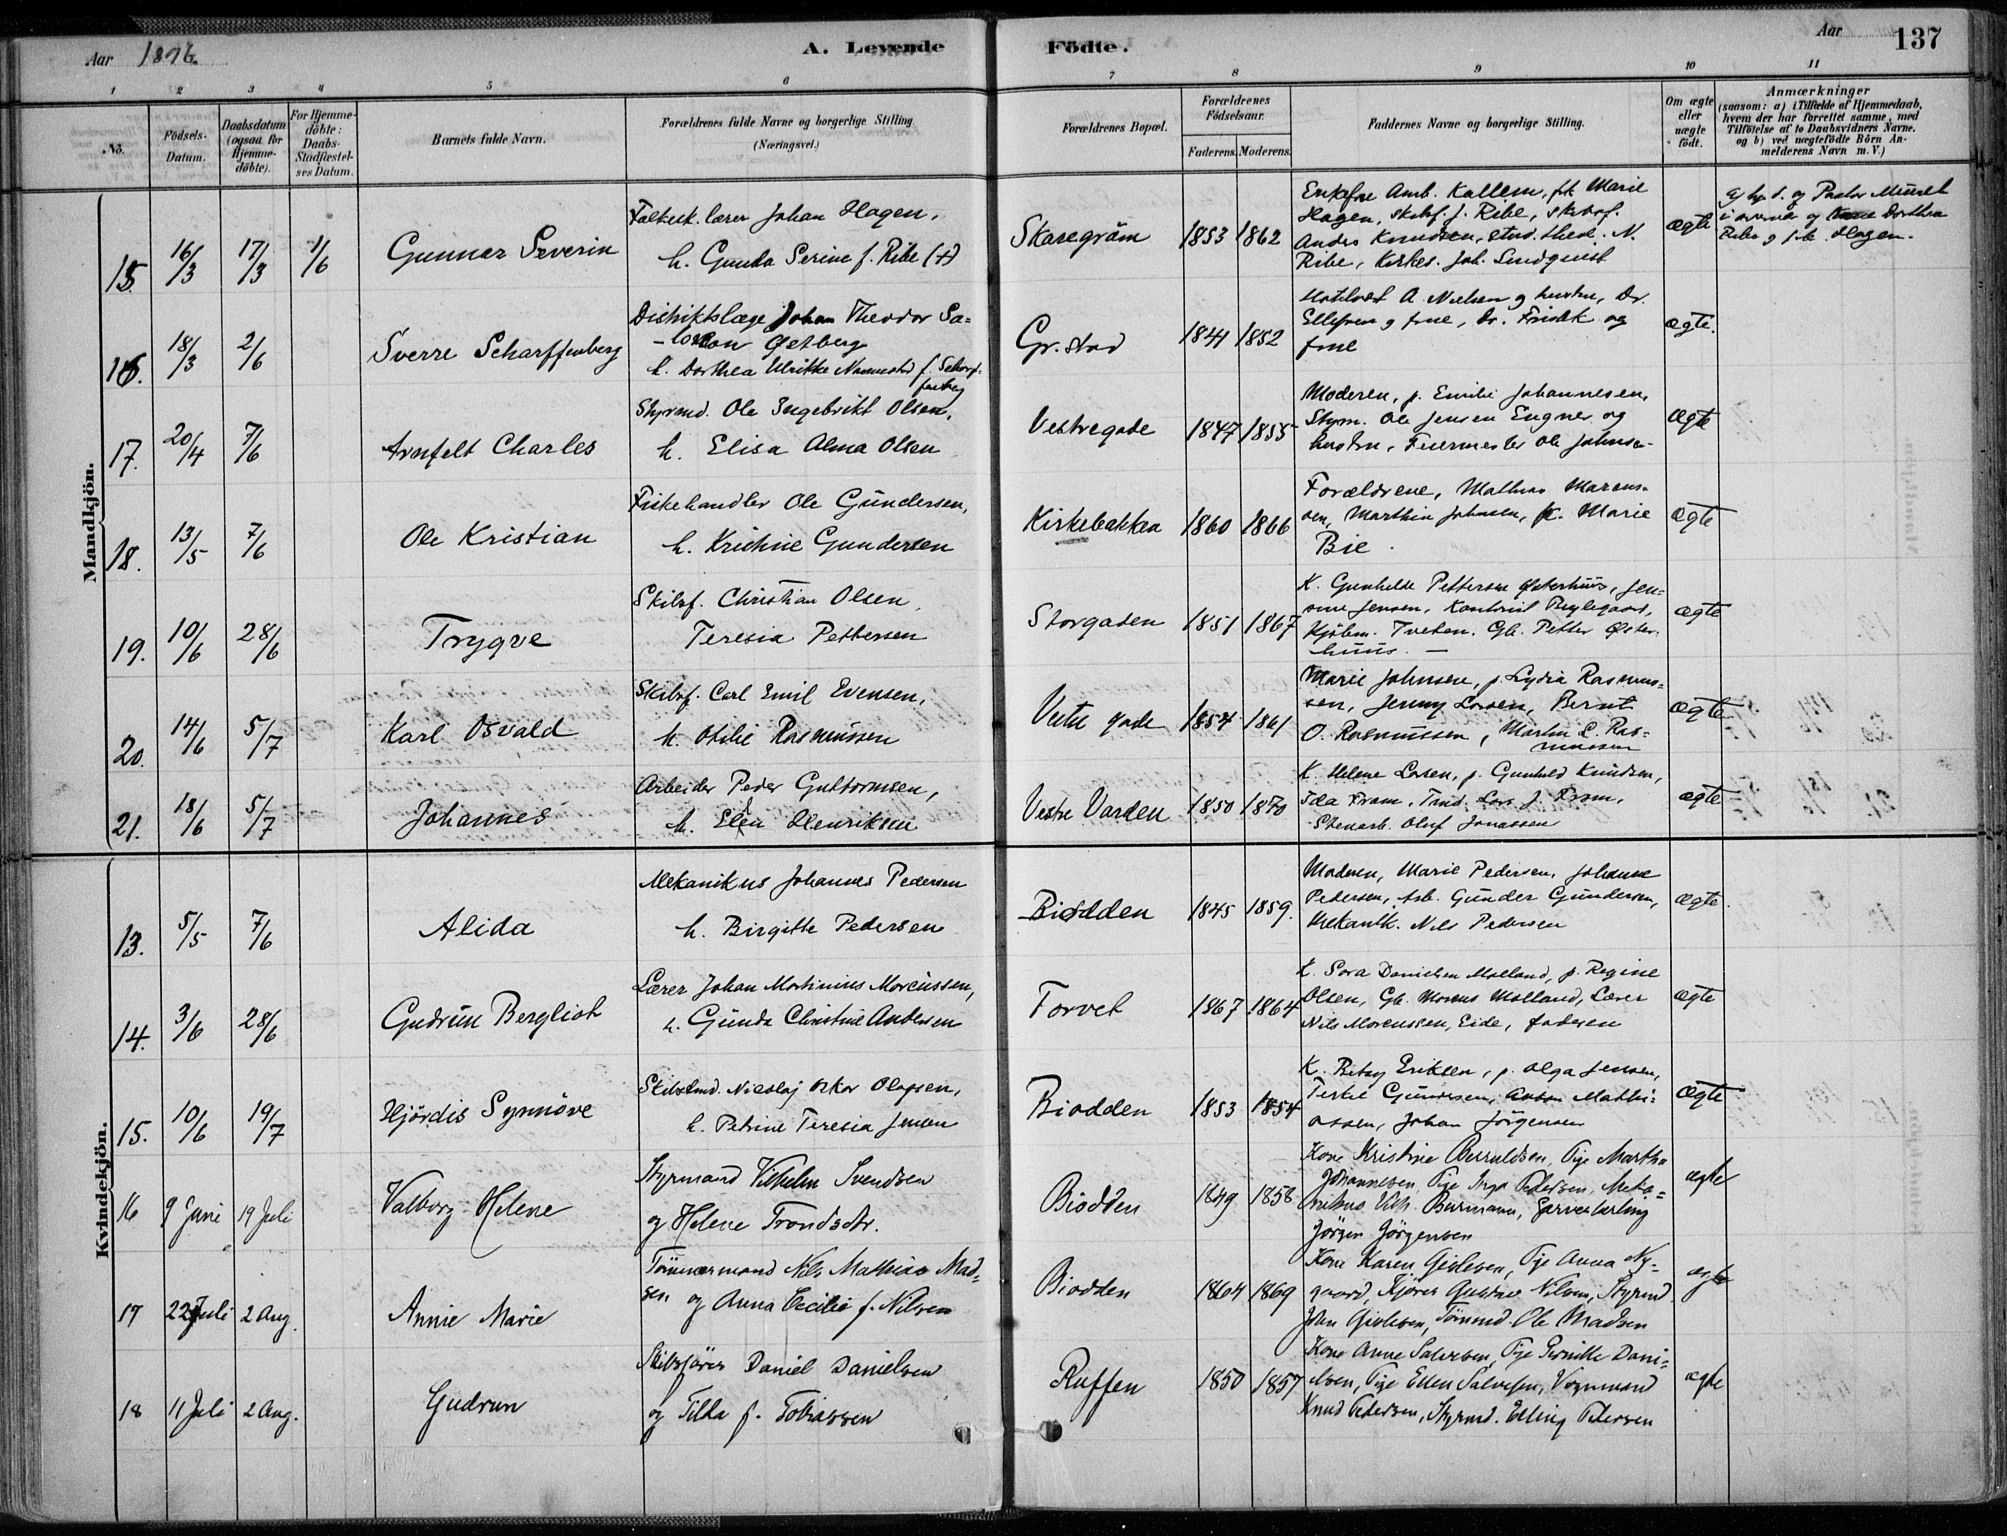 Aar 1896.
A. Levende Födte.
Aar
137
1 2 3 4 5 6 7 8 9 10 11
No.
Födsels-Datum.
Daabsdatum (ogsaa for Hjemme-döbte).
For Hjemme-döbte: Daabs-Stadfæstel-ses Datum.
Barnets fulde Navn.
Forældrenes fulde Navne og borgerlige Stilling. (Næringsvei.)
Forældrenes Bopæl.
Forældrenes Födselsaar.
Faderens. Moderens.
Faddernes Navne og borgerlige Stilling.
Om ægte eller uægte födt.
Anmærkninger
(saasom: a) i Tilfælde af Hjemmedaab,
hvem der har forrettet samme, med
Tilföielse af to Daabsvidners Navne.
og b) ved uægtefödte Börn An-
melderens Navn m. V.)
Mandkjön.
15. 16/3 17/3 1/6 Gunnar Severin
Folkesk. lærer Johan Hagen,
h. Gunda Serine f. Ribe (+)
Skaregröm 1853 1862
Enkefrue Amb. Kallem, frk Marie
Hagen, skibsf. J. Ribe, skibsf.
Anders Knudsen, stud. theol. N.
Ribe, Kirkes. Joh. Lindquist
ægte
16. 18/3 2/6 Sverre Scharffenberg
Distriktslæge Johan Theodor Sa-
lomon Østberg
h. Dorthea Ulrikke Nannestad f. Scharf-
fenberg
Gr.stad 1841 1852
A. Nielsen og hustru, Dr.
Ellefsen og frue, Dr. og
frue
ægte.
17. 20/4 7/6 Arnfelt Charles
Styrmd. Ole Ingebrikt Olsen,
h. Elisa Alma Olsen
Vestregade 1847 1855
Moderen, p. Emilie Johannesen,
Styrm. Ole Jensen Engner og
hustru, Feiermester Ole Johnsen
ægte
18. 13/5 7/6 Ole Kristian
Fiskehandler Ole Gundersen,
h. Kristine Gundersen
Kirkebakken 1860 1866
Forældrene, Mathias Marcus-
sen, Marthin Johnsen, K. Marie
Bie.
ægte
19. 10/6 28/6 Trygve
Skibsf. Christian Olsen,
Teresia Pettersen
Storgaden 1851 1867
K. Gunhilde Petterse Østerhuus, Jen-
sine Jensen, Kontorist
Kjöbm. Tveten. Gb. Petter Øster-
huus. —
ægte
20. 14/6 5/7 Karl Osvald
Skibsf. Carl Emil Evensen,
h. Otilie Rasmussen
Vestre gade 1854 1861
Marie Johnsen, p. Lydia Rasmus-
sen, Jenny Larsen, Bernt
O. Rasmussen, Martin L. Ras-
mussen
ægte
21. 18/6 5/7 Johannes
Arbeider Peder Guttormsen,
h. Elen Henriksen
Vestre Varden 1850 1870
K. Helene Larsen, p. Gunhild Knudsen,
Ida Fram, Tømd. Lars J. Fram,
Stenarb. Oluf Jonassen
ægte
Kvindekjön.
13. 5/5 7/6 Alida
Mekanikus Johannes Pedersen
h. Birgitte Pedersen
Biodden 1845 1859.
Moderen, Marie Pedersen, Johanne
Pedersen, Arb. Gunder Gundersen,
Mekanik. Nils Pedersen
ægte.
14. 3/6 28/6 Gudrun Bergliot
Lærer Johan Martinius Marcussen,
h. Gunda Christine Andersen
Torvet 1867 1864
K. Sara Danielsen Molland, p. Regine
Olsen, Gb. Marcus Molland, Lærer
Nils Marcussen, Eide, faderen
ægte
15. 10/6 19/7 Hjördis Synnöve
Skibstmd. Nicolaj Oskar Olafsen,
h. Petrine Teresia Jensen
Biodden 1853 1854
K. Betsy Eriksen, p. Olga Jensen,
Terkel Gundersen, Anton Mathi-
assen, Johan Jörgensen
ægte
16 9 Juni 19 Juli Valborg Helene
Styrmand Vilhelm Svendsen
og Helene Trondsdtr.
Biodden 1849 1858
Kone Kristine Berruldsen, Pige Martha
Johannesen, Pige Inga Pedersen, Meka-
nikus Vilh. Burmann, Garverlærling
Jörgen Jörgensen
ægte
17 22 Juli 2 Aug. Annie Marie
Tömmermand Nils Mathias Mad-
sen og Anna Cecilie f. Nilsen
Biodden 1864 1869
Kone Karen Gislesen, Pige Anna Ny-
gaard, Kjörer Gustav Nilsen, Styrmd.
Johan Gislesen, Tömmd. Ole Madsen
ægte
18 11 Juli 2 Aug. Gudrun
Skibsförer Daniel Danielsen
og Tilla f. Tobiassen
Ruffen 1850 1857
Kone Anne Salvesen, Pige Pernille Dani-
elsen, Pige Ellen Salvesen, Vognmand
Knud Pedersen, Styrmd. Elling Petersen
ægte